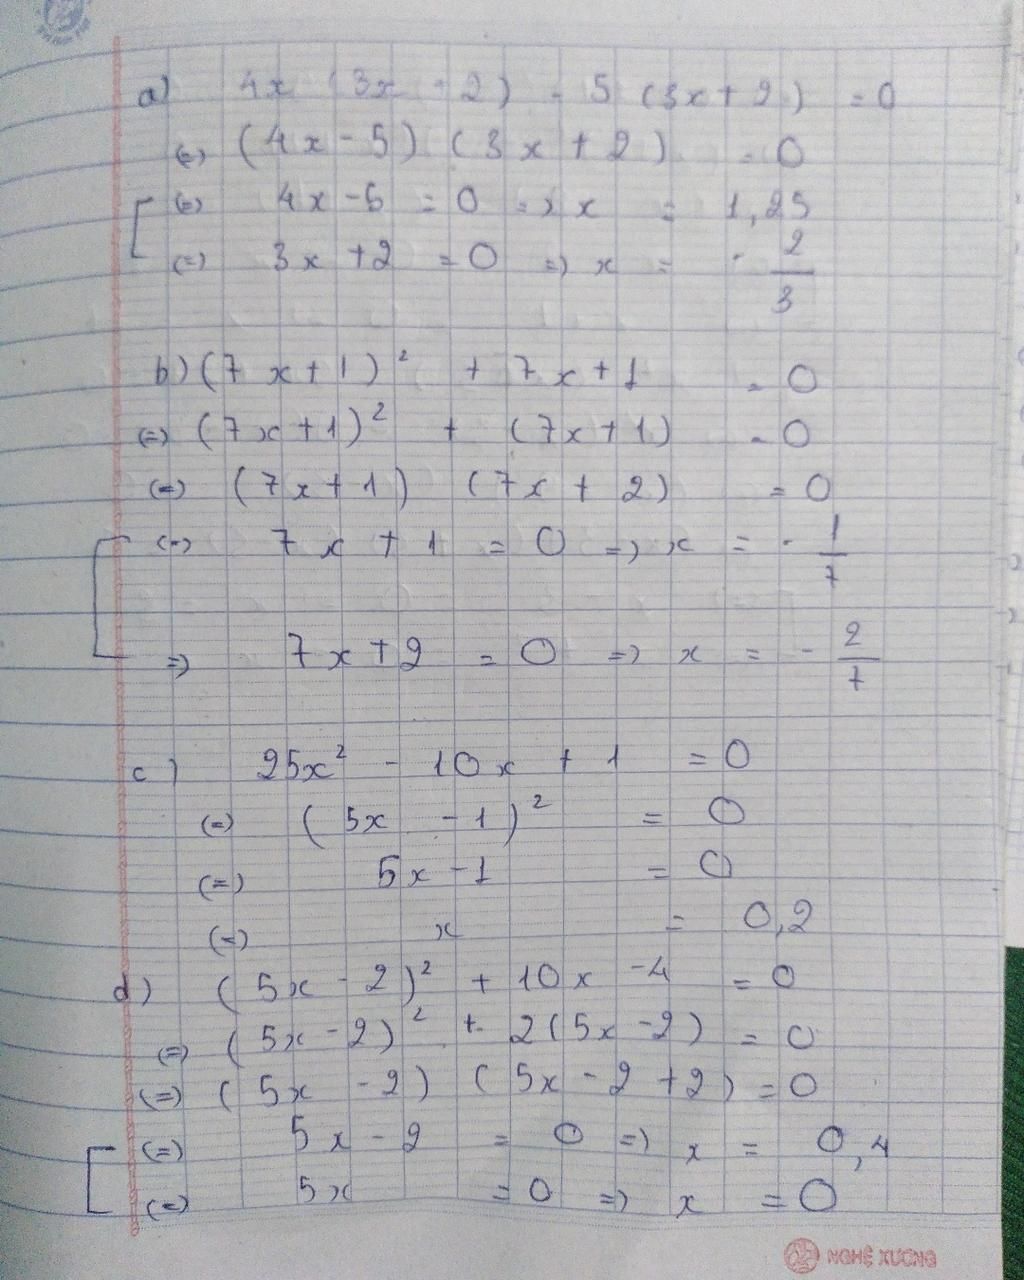 a) 4x (3x + 2) - 5 (3x + 2) = 0
(=) (4x - 5) (3x + 2) = 0
(=) 4x - 5 = 0 => x = 1,25
(=) 3x + 2 = 0 => x = - 2/3
b) (7x + 1)² + 7x + 1 = 0
(=) (7x + 1)² + (7x + 1) = 0
(=) (7x + 1) (7x + 2) = 0
(=) 7x + 1 = 0 => x = - 1/7
=> 7x + 2 = 0 => x = - 2/7
c) 25x² - 10x + 1 = 0
(=) (5x - 1)² = 0
(=) 5x - 1 = 0
(=) x = 0,2
d) (5x - 2)² + 10x - 4 = 0
(=) (5x - 2)² + 2(5x - 2) = 0
(=) (5x - 2) (5x - 2 + 2) = 0
(=) 5x - 2 = 0 => x = 0,4
(=) 5x = 0 => x = 0
NGHỆ XƯƠNG